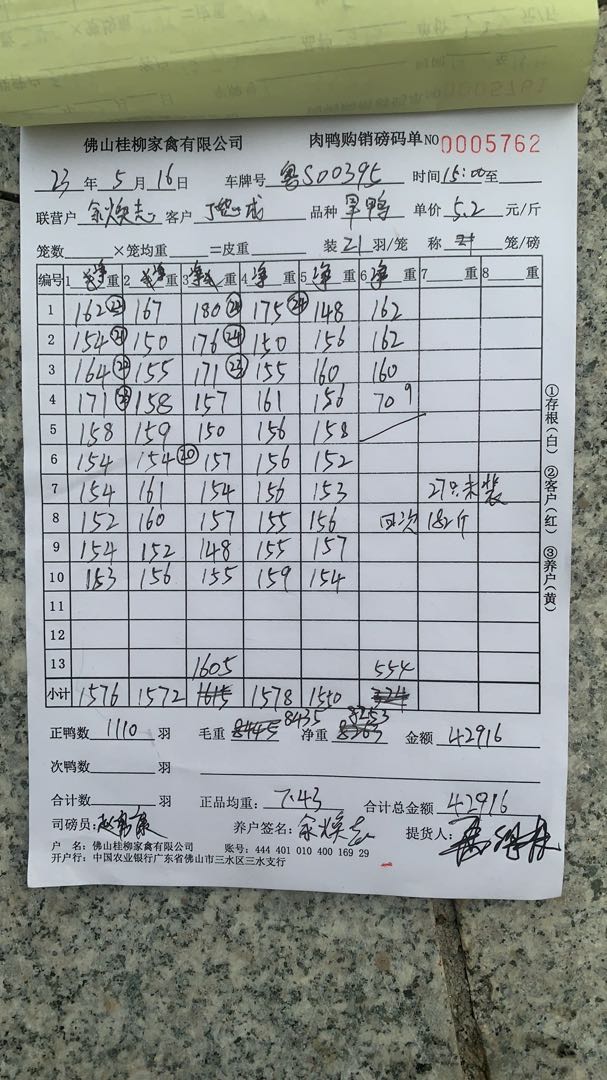 佛山桂柳家禽有限公司 肉鸭购销磅码单 NO 0005762
23 年 5 月 16 日 车牌号 粤S00395 时间 15:00 至
联营户 余焕志 客户 品种 旱鸭 单价 5.2 元/斤
笼数 ×笼均重 =皮重 装 21 羽/笼 称 笼/磅
编号 1 净 重 2 净 重 3 净 重 4 净 重 5 净 重 6 净 重 7 重 8 重
1 162 167 180 24 175 24 148 162
2 154 21 150 176 24 150 156 162
3 164 155 171 23 155 160 160
4 171 158 157 161 156 70 9
5 158 159 150 156 158
6 154 154 20 157 156 152
7 154 161 154 156 153 27只未装
8 152 160 157 155 156 四次 182斤
9 154 152 148 155 157
10 153 156 155 159 154
11
12
13 1605 554
小计 1576 1572 1615 1578 1550
正鸭数 1110 羽 毛重 8445 8435 净重 8263 8253 金额 42916
次鸭数 羽
合计数 羽 正品均重: 7.43 合计总金额 42916
司磅员: 养户签名: 余焕志 提货人:
户 名: 佛山桂柳家禽有限公司 账号: 444 401 010 400 169 29
开户行: 中国农业银行广东省佛山市三水区三水支行
①存根(白) ②客户(红) ③养户(黄)